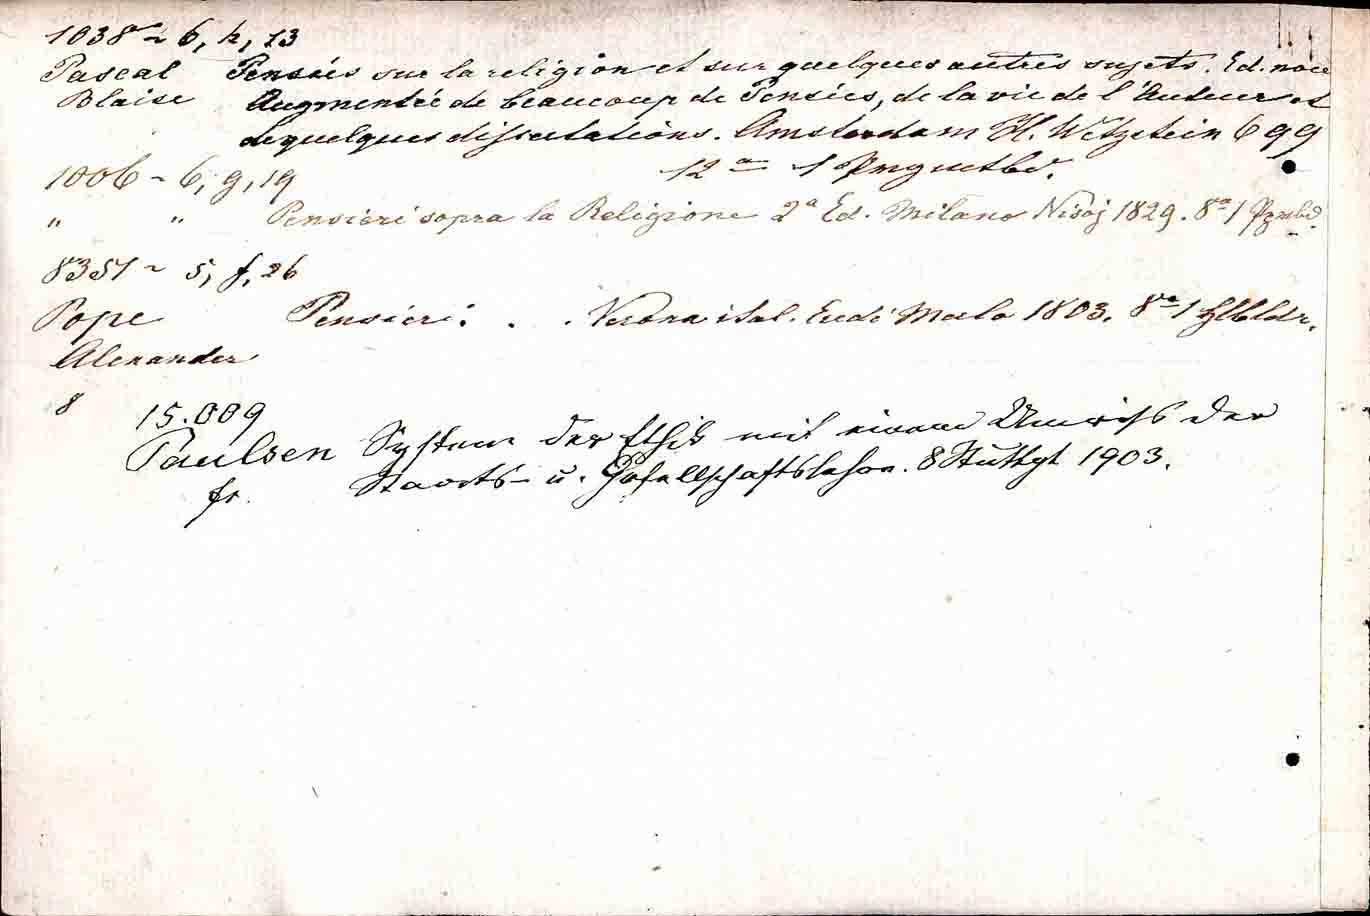 1038 ~ 6, h, 13
Pascal Pensées sur la religion et sur quelques autres sujets. Ed. nove
Blaise Augmentée de beaucoup de Pensées, de la vie de l'Auteur et
de quelques dissertations. Amsterdam H. Wetzstein 699
12° 1
1006 ~ 6, g, 19
" " Pensieri sopra la Religione 2ª Ed. Milano 1829. 8° 1
8351 ~ 5, f, 26
Pope Pensieri . . Versiona ital. 1803. 8° 1 Hlbldr.
Alexander
8 15.009
Paulsen System der Ethik mit einem Umriss der
fr. Staats- u. Gesellschaftslehre. 8 Stuttgt 1903.